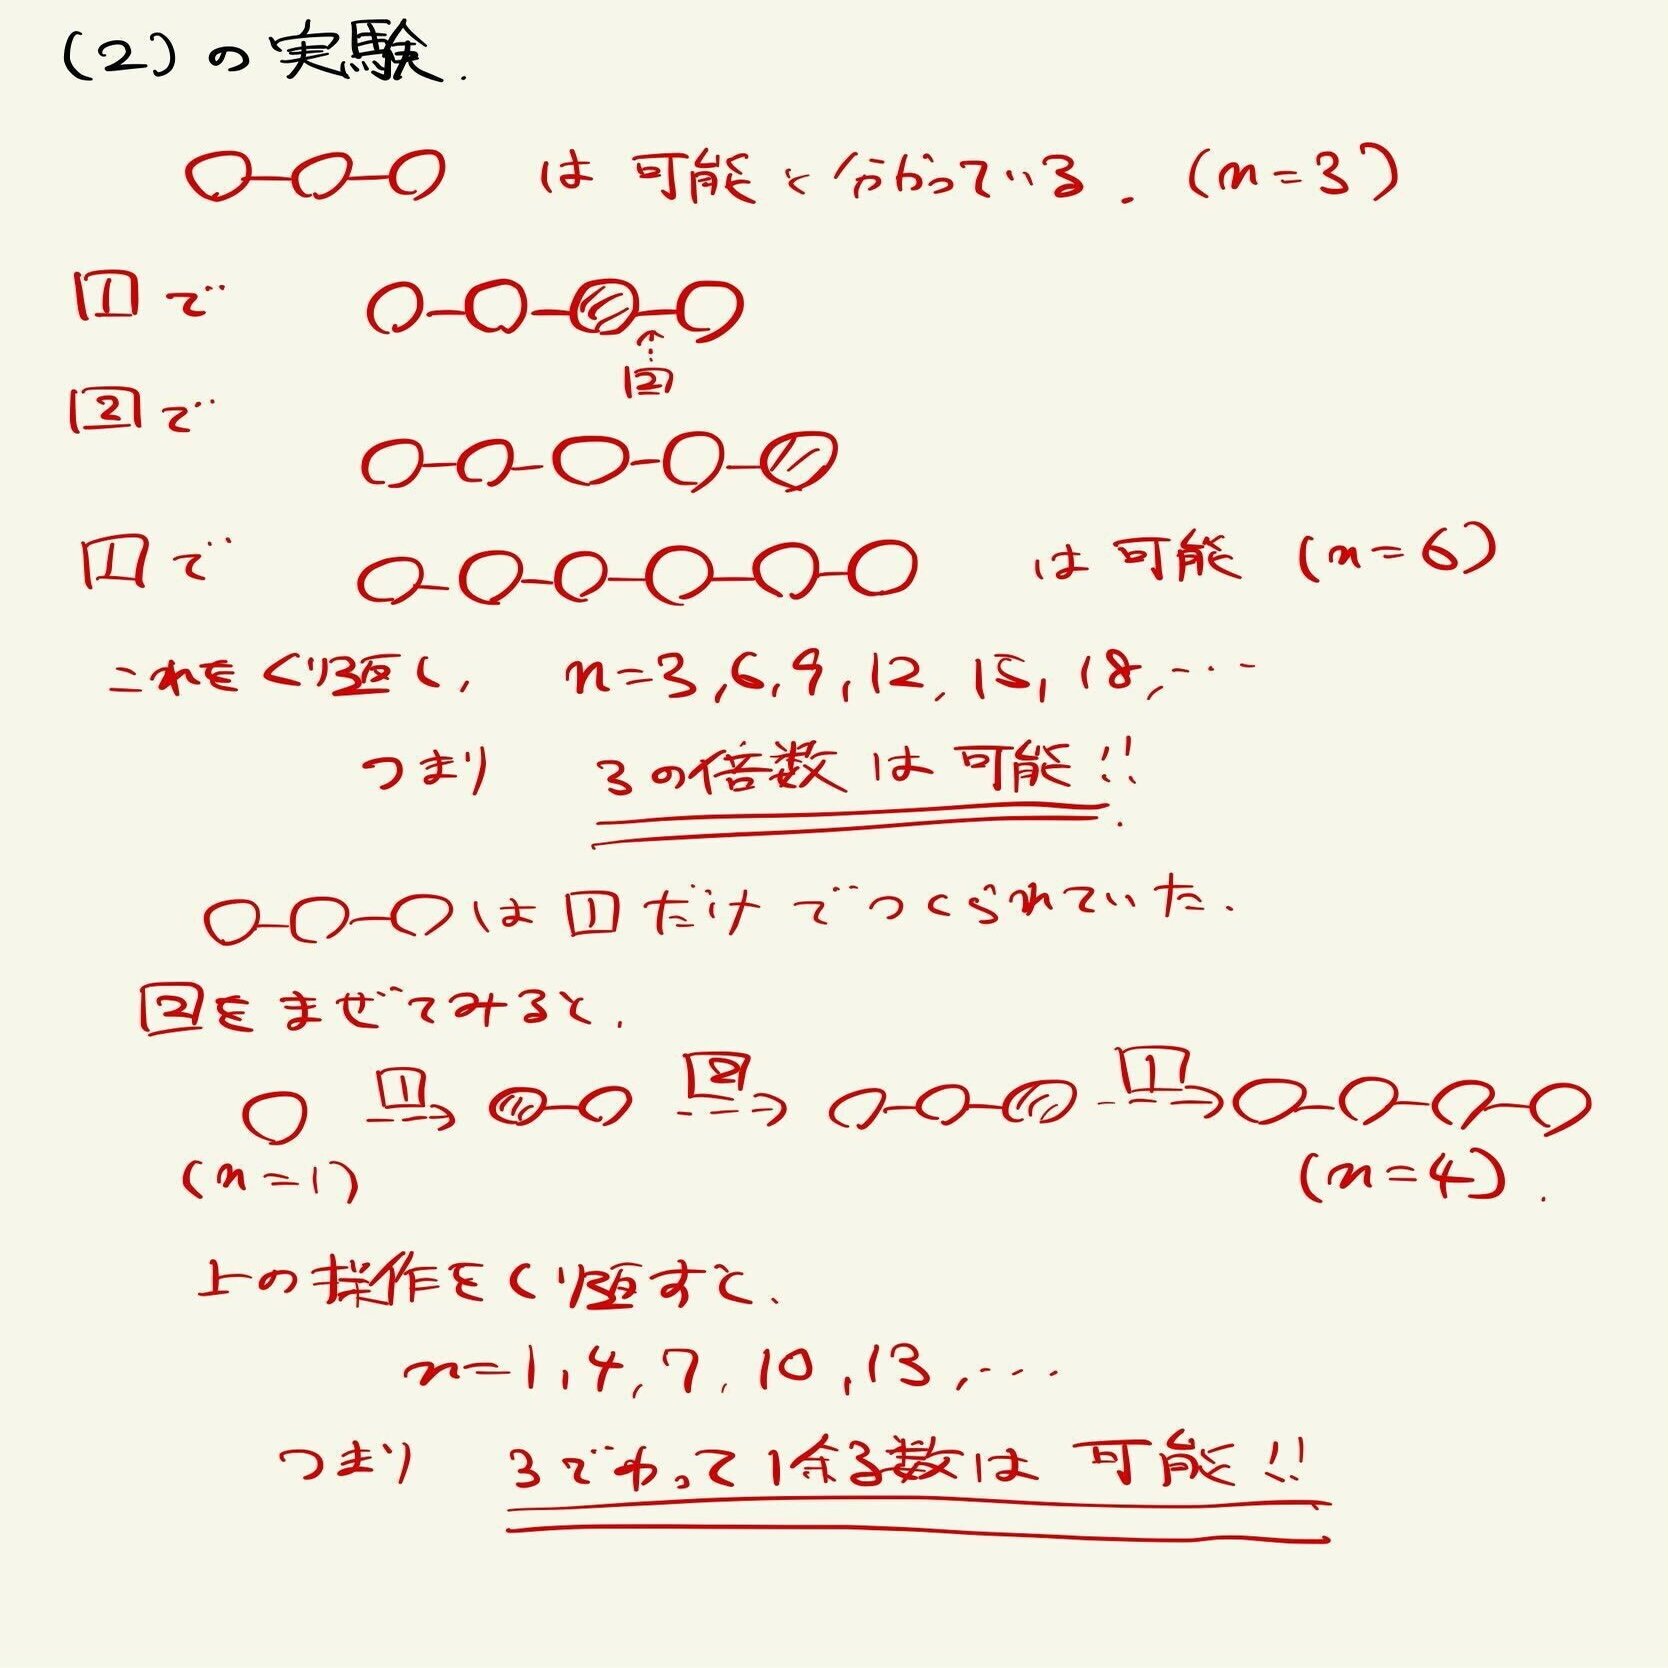 (2)の実験.
は可能と分かっている. (n=3)
1で
2
2で
1で は可能 (n=6)
これをくり返し, n=3,6,9,12,15,18,…
つまり 3の倍数は可能!!
は1だけでつくられていた.
2をまぜてみると,
1 2 1
(n=1) (n=4).
上の操作をくり返すと,
n=1,4,7,10,13,…
つまり 3でわって1余る数は可能!!